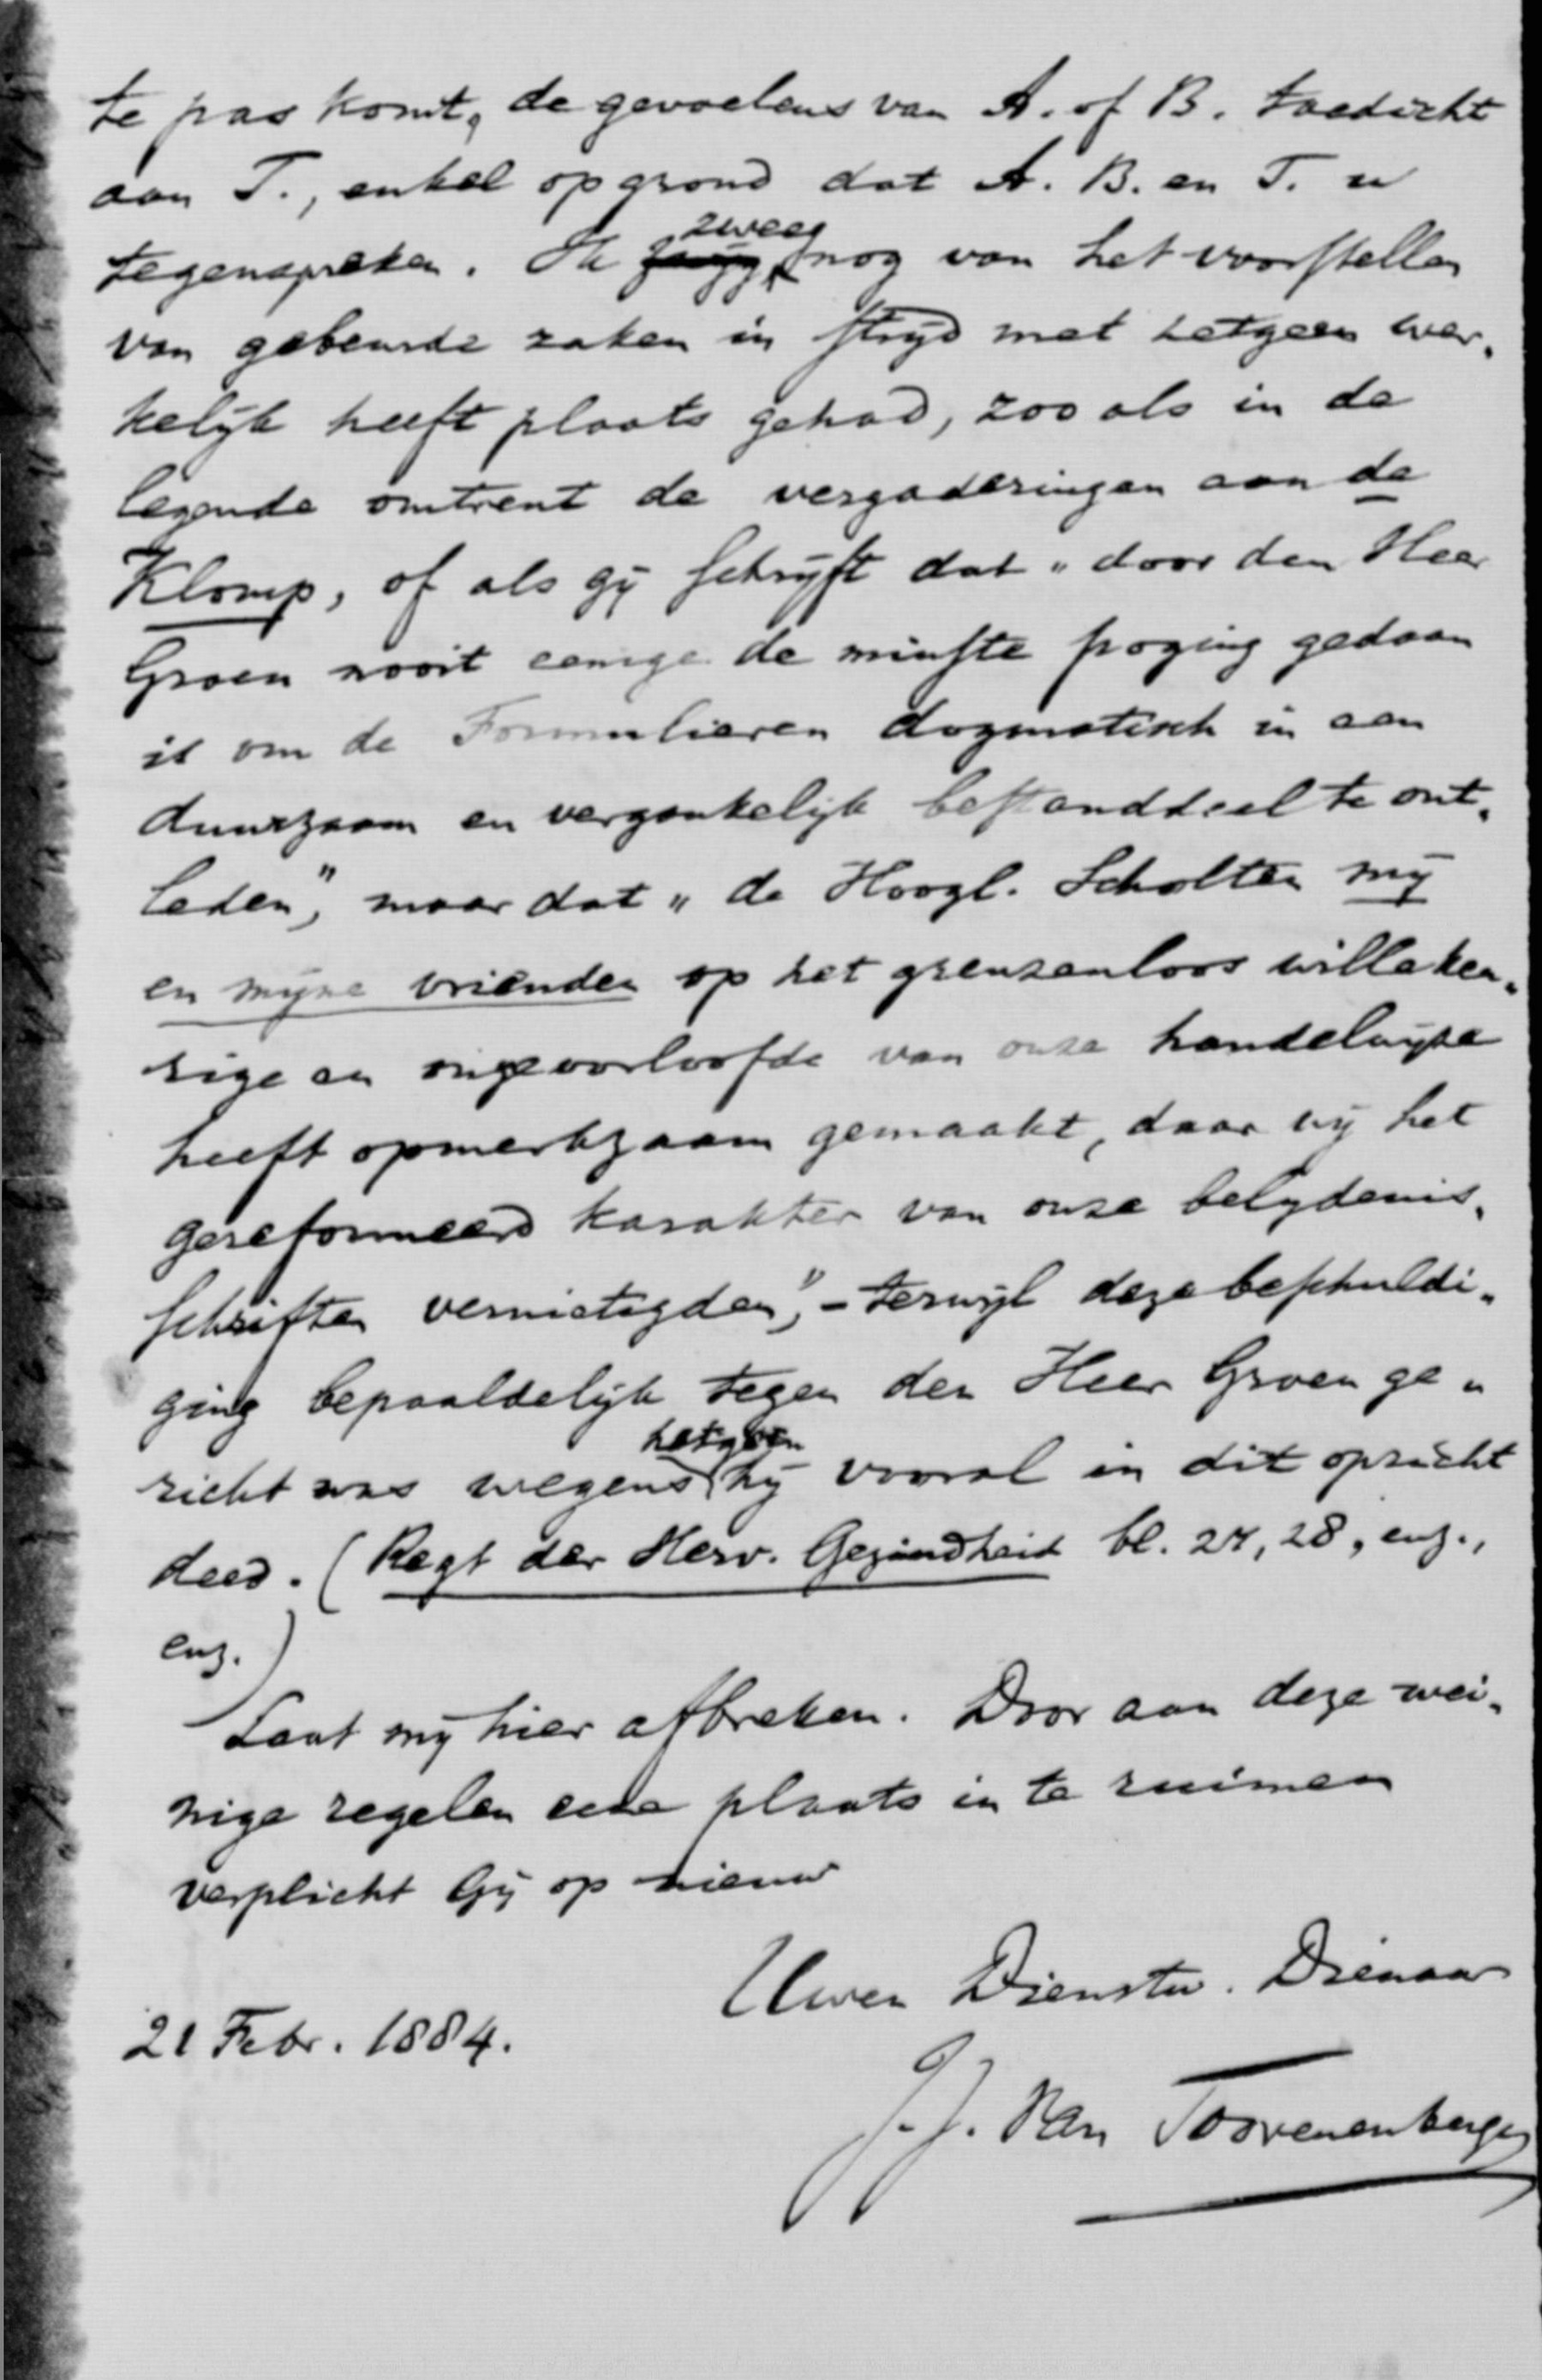 te pas komt, de gevoelens van A. of B. toedicht
aan T., enkel op grond dat A. B. en T. u
tegenspreken. Ik zweeg nog van het voorstellen
van gebeurde zaken in strijd met hetgeen wer-
kelijk heeft plaats gehad, zoo als in de
legende omtrent de vergaderingen aan de
Klomp, of als gij schrijft dat „door den Heer
Groen nooit eenige de minste poging gedaan
is om de Formulieren dogmatisch in een
duurzaam en vergankelijk bestanddeel te ont-
leden", maar dat „de Hoogl. Scholten mij
en mijne vrienden op het grenzenloos willekeu-
rige en ongeoorloofde van onze handelwijze
heeft opmerkzaam gemaakt, daar wij het
gereformeerd karakter van onze belijdenis-
schriften vernietigden", – terwijl deze beschuldi-
ging bepaaldelijk tegen den Heer Groen ge-
richt was wegens hetgeen hij vooral in dit opzicht
deed. (Regt der Herv. Gezindheid bl. 27, 28, enz.,
enz.)
Laat mij hier afbreken. Door aan deze wei-
nige regelen eene plaats in te ruimen
verplicht Gij op nieuw
Uwen Dienstw. Dienaar
21 Febr. 1884.
J. J. Van Toorenenbergen